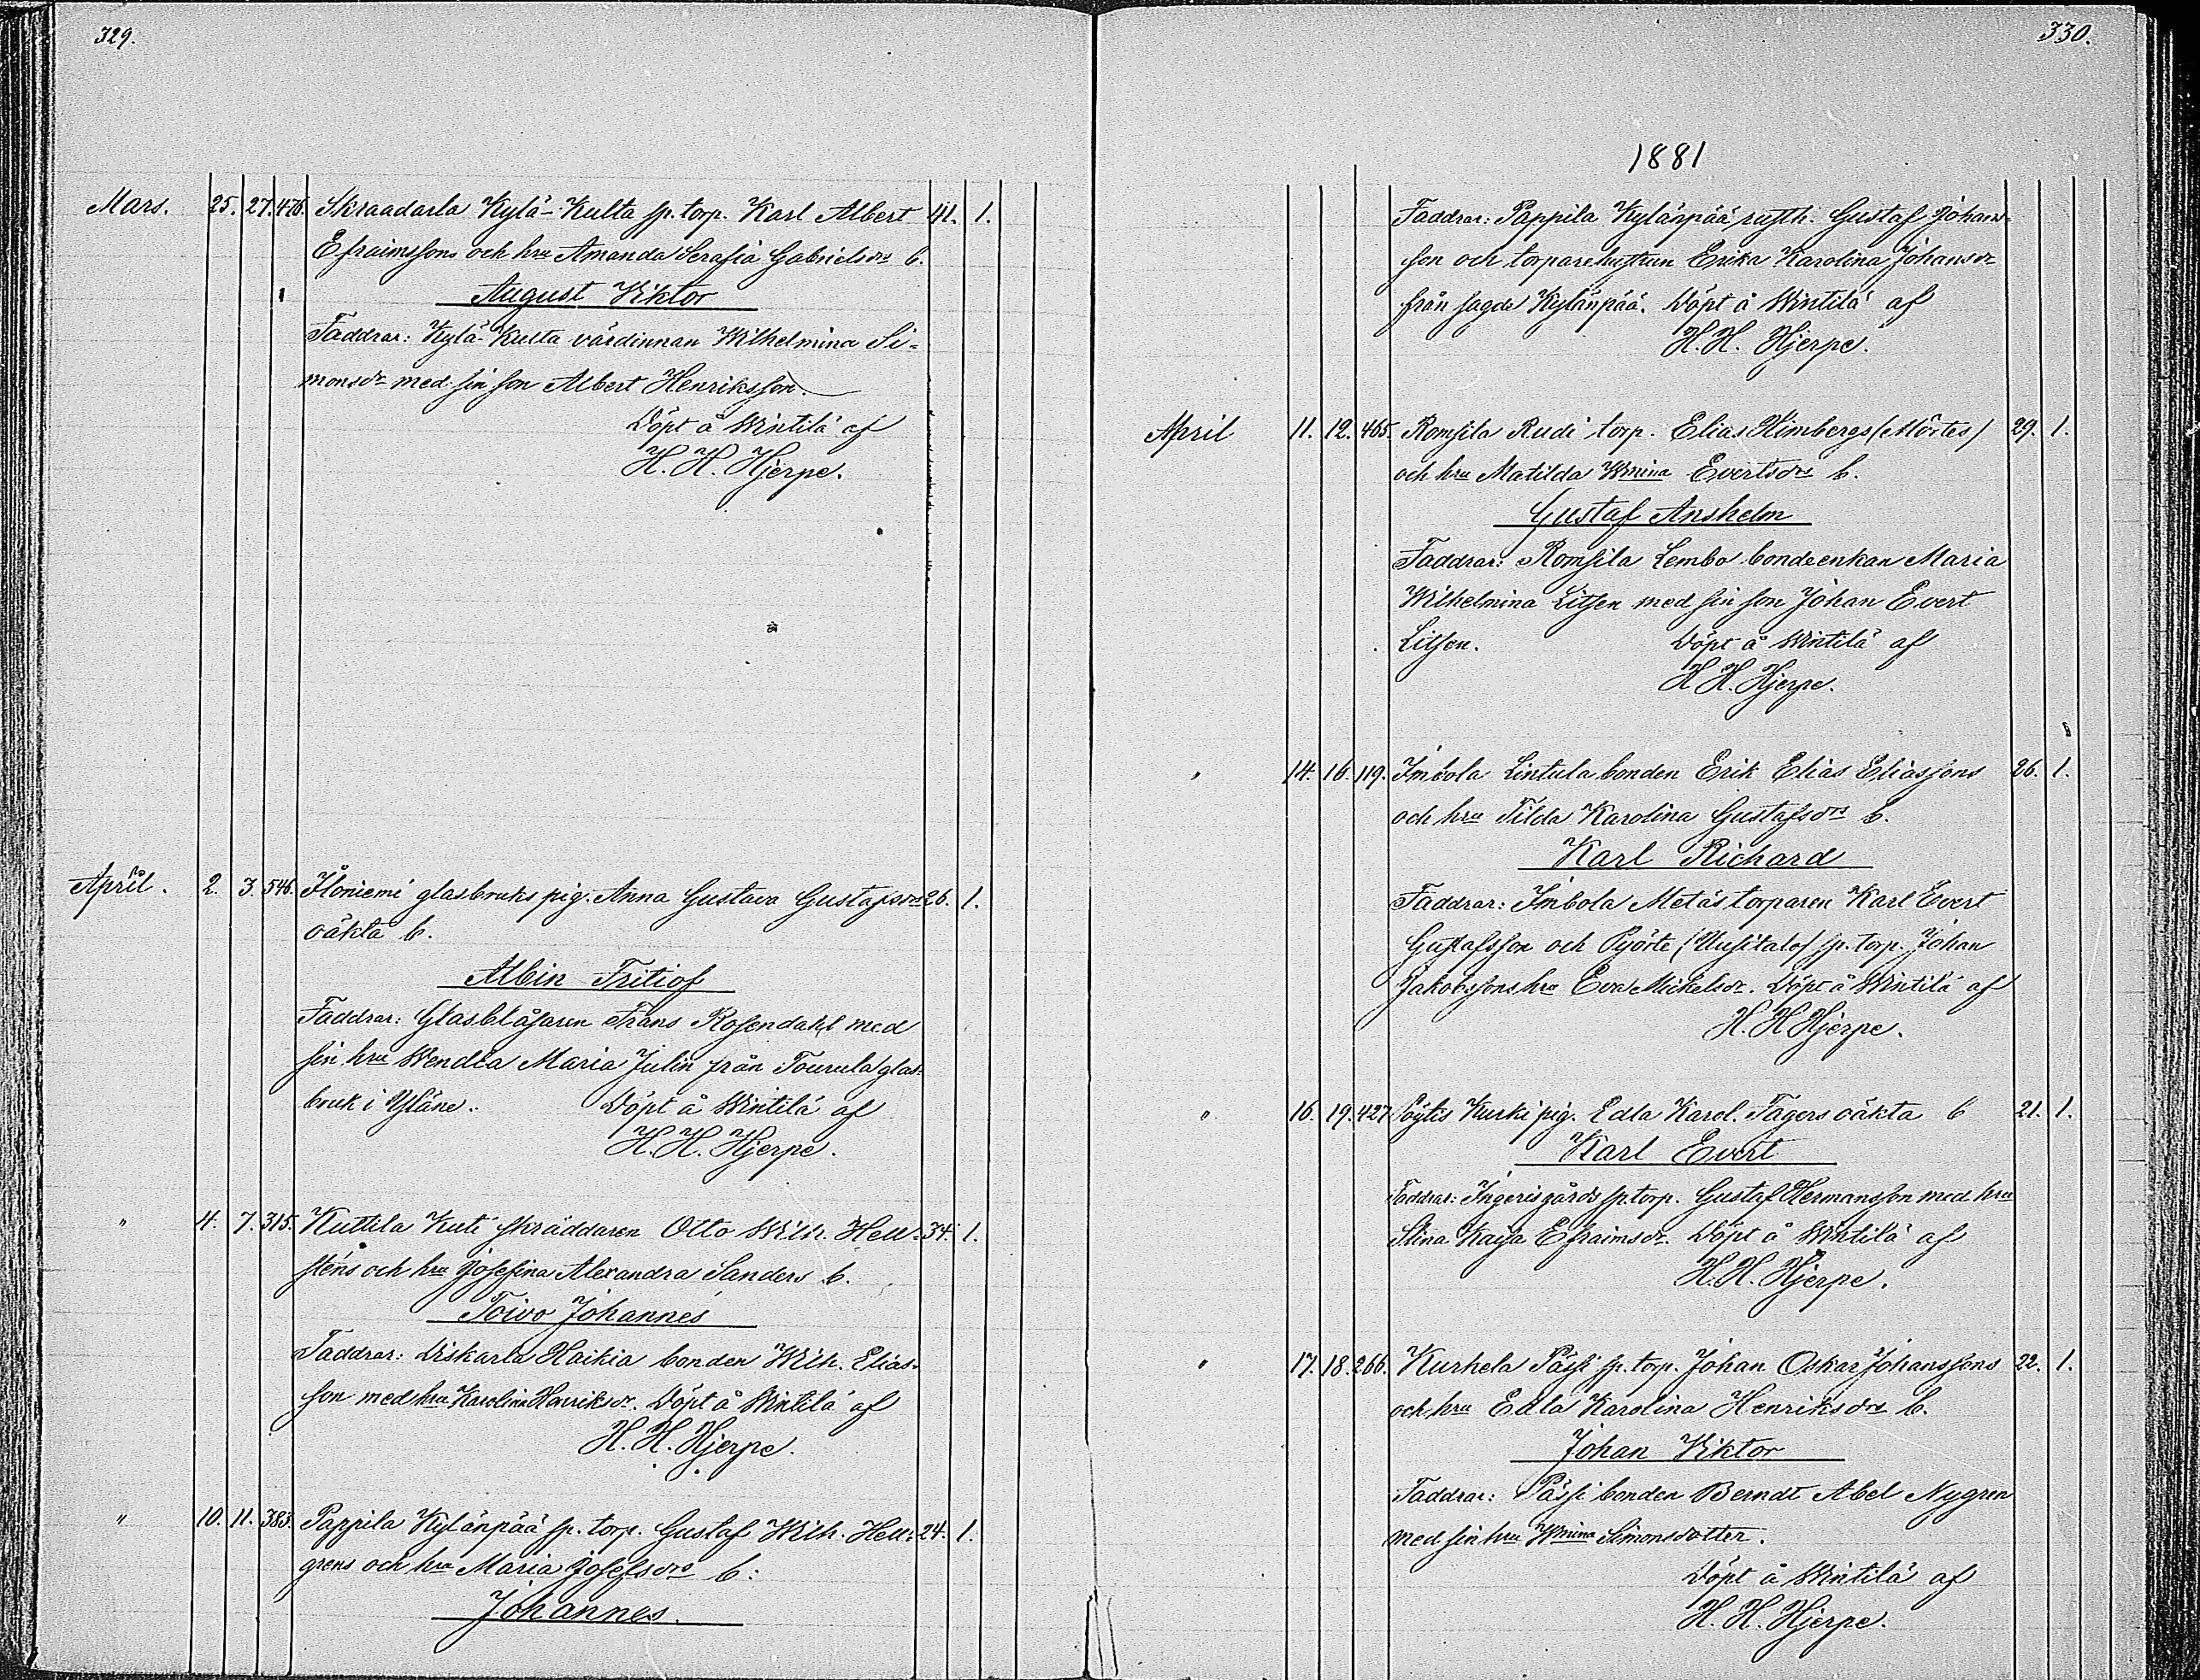 329.
Mars. 25. 27. 476. Skraadarla Kylä-Kulta sp. torp. Karl Albert 41. 1.
Efraimssons och hru Amanda Serafia Gabrielsdrs b.
August Viktor
Faddrar: Kylä-Kulta värdinnan Wilhelmina Si-
monsdr med sin son Albert Henriksson.
Döpt å Wintilä af
H. H. Hjerpe.
April. 2. 3. 546. Iloniemi glasbruks pig. Anna Gustava Gustafsdrs 26. 1.
oäkta b.
Albin Fritiof
Faddrar: Glasblåsaren Frans Rosendahl med
sin hru Wendla Maria Julin från Tourula glas-
bruk i Yläne. Döpt å Wintilä af
H. H. Hjerpe.
" 4. 7. 315. Kuttila Kuti skräddaren Otto Wilh. Hell- 34. 1.
sténs och hru Josefina Alexandra Sanders b.
Toivo Johannes
Faddrar: Liskarla Haikia bonden Wilh. Elias-
son med hru Karolina Henriksdr. Döpt å Wintilä af
H. H. Hjerpe.
" 10. 11. 383. Pappila Kylänpää sp. torp. Gustaf Wilh. Hell- 24. 1.
grens och hru Maria Josefsdrs b:
Johannes.
330.
1881
Faddrar: Pappila Kylänpää rusth. Gustaf Johans-
son och torparehustrun Erika Karolina Johansdr
från sagda Kylänpää. Döpt å Wintilä af
H. H. Hjerpe.
April 11. 12. 465. Romsila Rudi torp. Elias Himbergs (Mörtes) 29. 1.
och hru Matilda Wmina Evertsdrs b.
Gustaf Anshelm
Faddrar: Romsila Lembo bondeenkan Maria
Wilhelmina Litsen med sin son Johan Evert
Litsen. Döpt å Wintilä af
H. H. Hjerpe.
" 14. 16. 119. Imbola Lintula bonden Erik Elias Eliassons 26. 1.
och hru Tilda Karolina Gustafsdrs b.
Karl Richard
Faddrar: Imbola Metäs torparen Karl Evert
Gustafsson och Pyörte (Uusitalo) sp. torp. Johan
Jakobssons hru Eva Michelsdr. Döpt å Wintilä af
H. H. Hjerpe.
" 16. 19. 427. Pöytis Kurki pig. Edla Karol. Fagers oäkta b 21. 1.
Karl Evert
Faddrar: Ingerisgårds sp. torp. Gustaf Hermansson med hru
Stina Kaisa Efraimsdr. Döpt å Wintilä af
H. H. Hjerpe.
" 17. 18. 266. Kurhela Pässi sp. torp. Johan Oskar Johanssons 22. 1.
och hru Edla Karolina Henriksdrs b.
Johan Viktor
Faddrar: Pässi bonden Berndt Abel Nygren
med sin hru Wmina Simonsdotter.
Döpt å Wintilä af
H. H. Hjerpe.